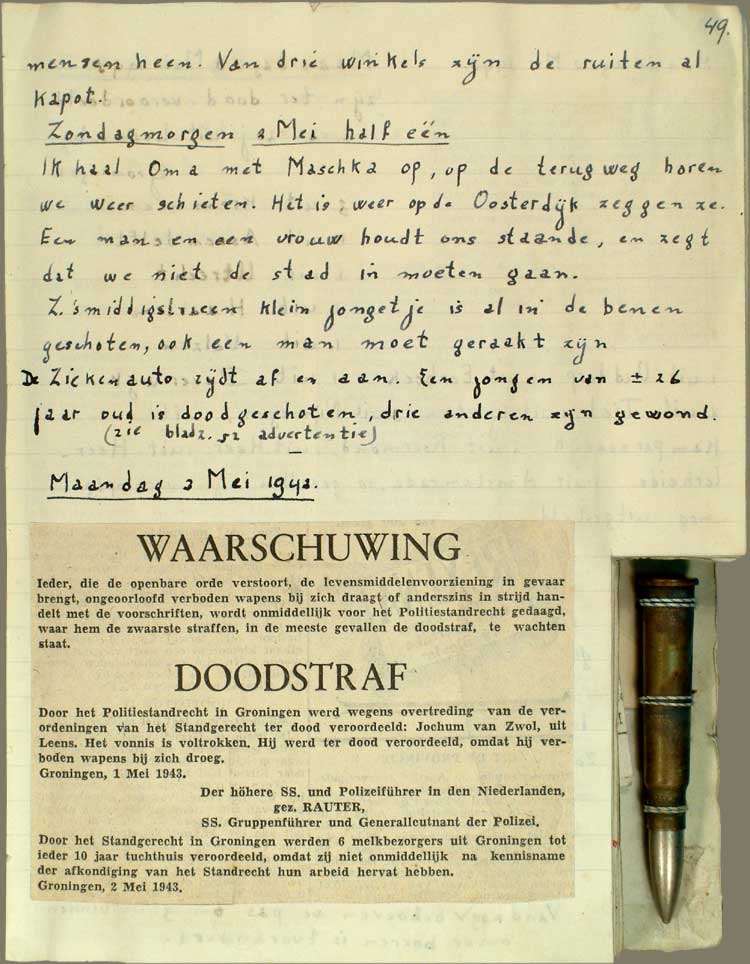 49.
mensen heen. Van drie winkels zijn de ruiten al
kapot.
Zondagmorgen 2 Mei half eën
Ik haal Oma met Maschka op, op de terugweg horen
we weer schieten. Het is weer op de Oosterdijk zeggen ze.
Een man en een vrouw houdt ons staande, en zegt
dat we niet de stad in moeten gaan.
Z. 'smiddigs een klein jongetje is al in de benen
geschoten, ook een man moet geraakt zijn
De Ziekenauto rijdt af en aan. Een jongen van ± 26
jaar oud is doodgeschoten, drie anderen zijn gewond.
(zie bladz. 52 advertentie)
Maandag 3 Mei 1943.
WAARSCHUWING
Ieder, die de openbare orde verstoort, de levensmiddelenvoorziening in gevaar
brengt, ongeoorloofd verboden wapens bij zich draagt of anderszins in strijd han-
delt met de voorschriften, wordt onmiddellijk voor het Politiestandrecht gedaagd,
waar hem de zwaarste straffen, in de meeste gevallen de doodstraf, te wachten
staat.
DOODSTRAF
Door het Politiestandrecht in Groningen werd wegens overtreding van de ver-
ordeningen van het Standgerecht ter dood veroordeeld: Jochum van Zwol, uit
Leens. Het vonnis is voltrokken. Hij werd ter dood veroordeeld, omdat hij ver-
boden wapens bij zich droeg.
Groningen, 1 Mei 1943.
Der höhere SS. und Polizeiführer in den Niederlanden,
gez. RAUTER,
SS. Gruppenführer und Generalleutnant der Polizei.
Door het Standgerecht in Groningen werden 6 melkbezorgers uit Groningen tot
ieder 10 jaar tuchthuis veroordeeld, omdat zij niet onmiddellijk na kennisname
der afkondiging van het Standrecht hun arbeid hervat hebben.
Groningen, 2 Mei 1943.